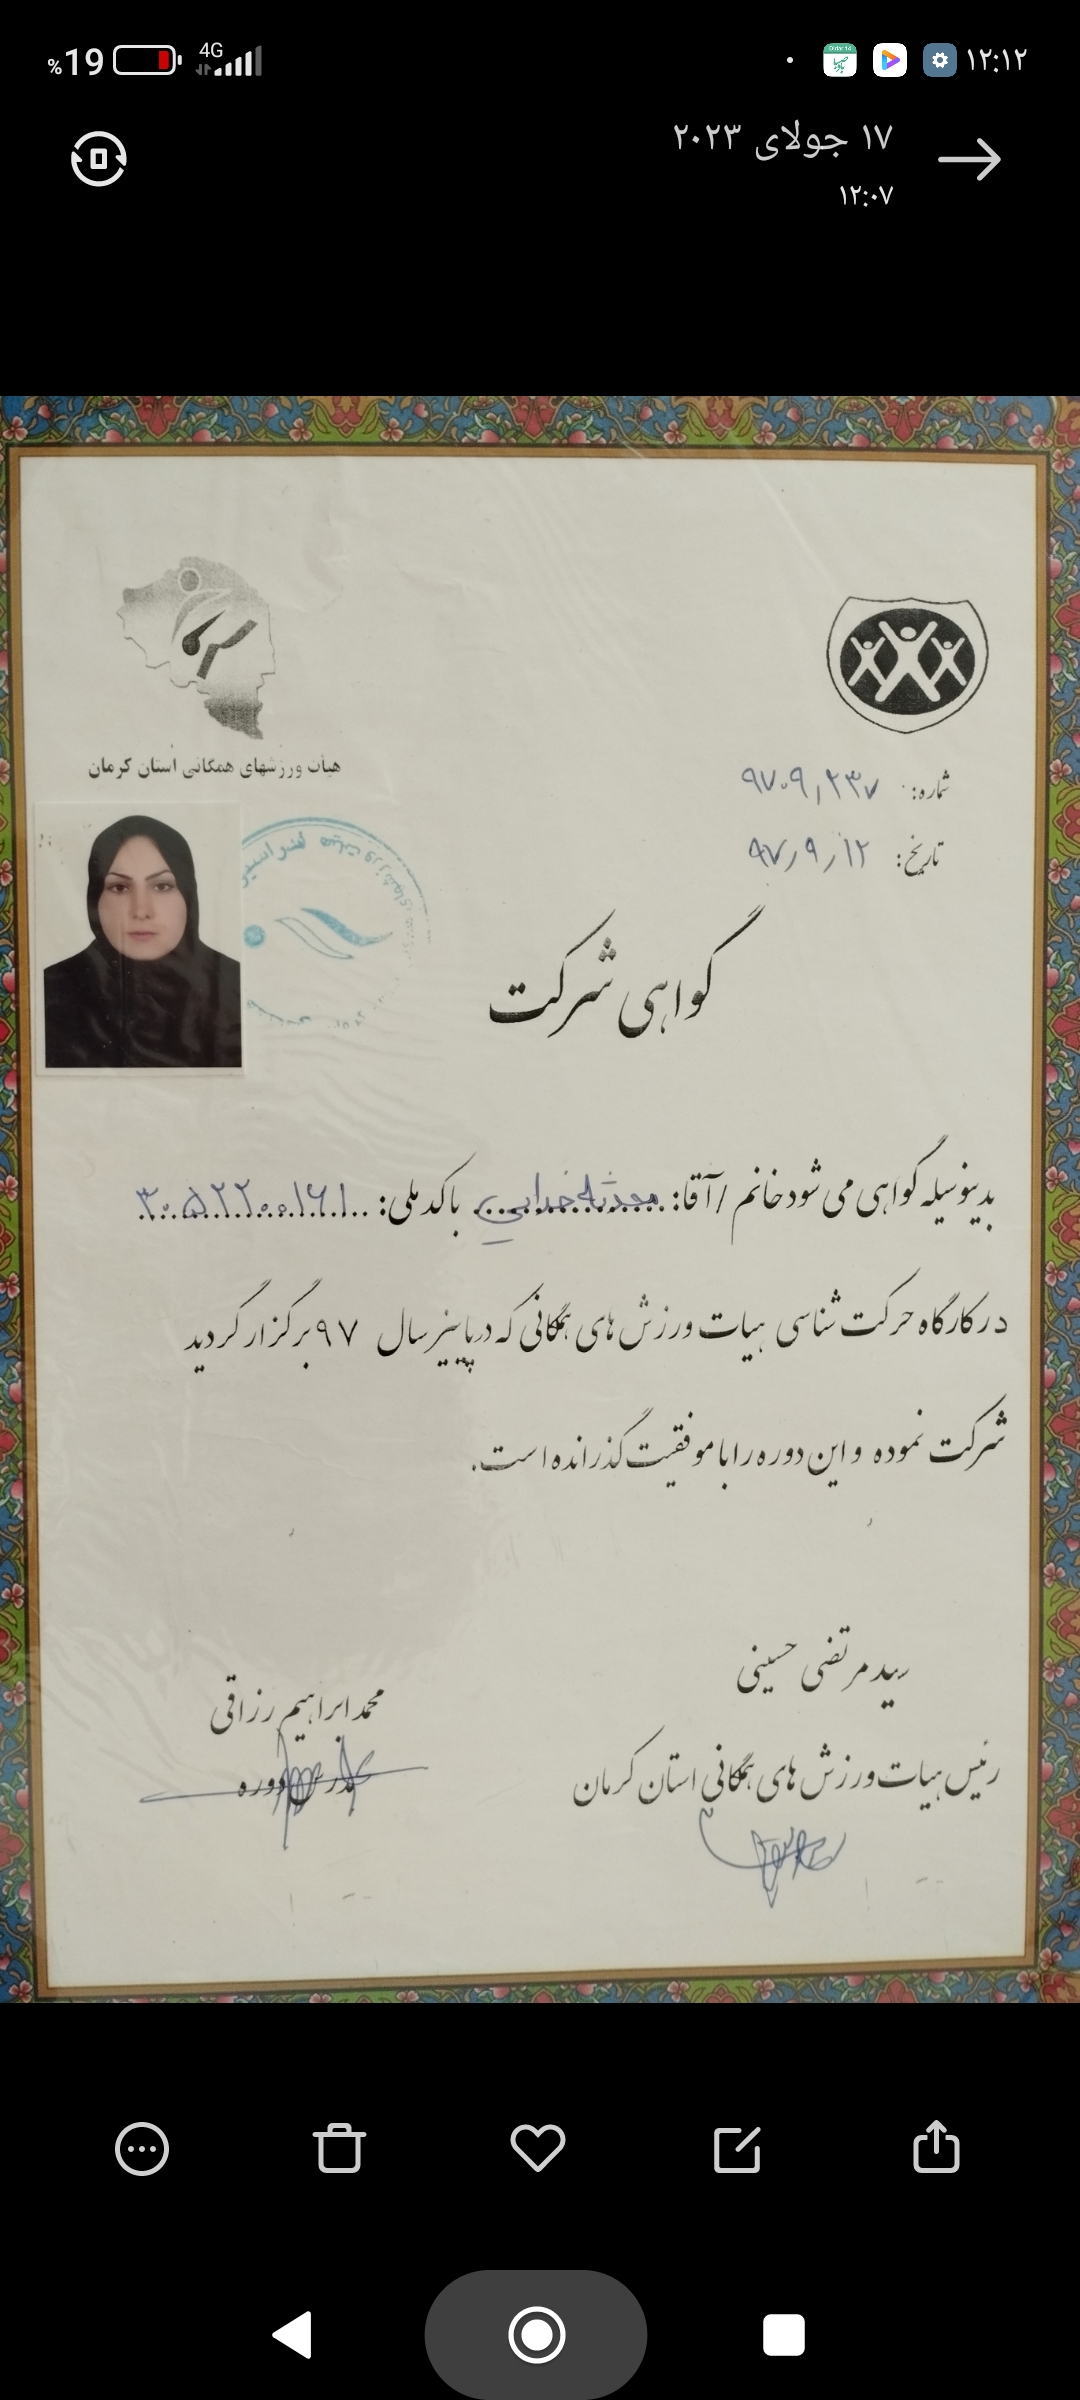 ۱۲:۱۲
4G
%19
۱۷ جولای ۲۰۲۳
۱۲:۰۷
هیأت ورزشهای همگانی استان کرمان
شماره: ۹۷۰۹/۲۳۷
تاریخ: ۹۷/۹/۱۲
گواهی شرکت
بدینوسیله گواهی می شود خانم / آقا: محدثه خدایی با کد ملی: ۳۰۵۲۲۰۰۱۶۱
در کارگاه حرکت شناسی هیات ورزش های همگانی که در پاییز سال ۹۷ برگزار گردید
شرکت نموده و این دوره را با موفقیت گذرانده است.
سید مرتضی حسینی
رئیس هیات ورزش های همگانی استان کرمان
محمد ابراهیم رزاقی
مدرس دوره